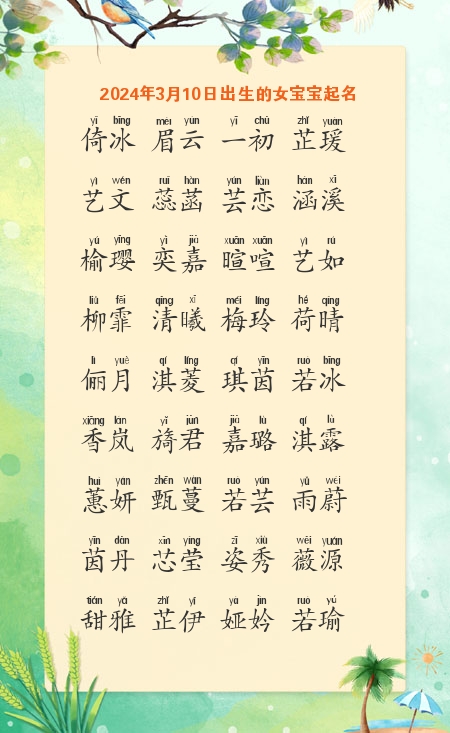 2024年3月10日出生的女宝宝起名
yǐ bīng méi yún yī chū zhǐ yuàn
倚冰 眉云 一初 芷瑗
yì wén ruǐ hàn yún liàn hán xī
艺文 蕊菡 芸恋 涵溪
yú yīng yì jiā xuān xuān yì rú
榆璎 奕嘉 暄喧 艺如
liǔ fēi qīng xī méi líng hé qíng
柳霏 清曦 梅玲 荷晴
lì yuè qí líng qí yīn ruò bīng
俪月 淇菱 琪茵 若冰
xiāng lán yǐ jūn jiā lù qí lù
香岚 旖君 嘉璐 淇露
huì yán zhēn wàn ruò yún yǔ wèi
蕙妍 甄蔓 若芸 雨蔚
yīn dān xīn yíng zī xiù wēi yuán
茵丹 芯莹 姿秀 薇源
tián yǎ zhǐ yī yà jìn ruò yú
甜雅 芷伊 娅妗 若瑜